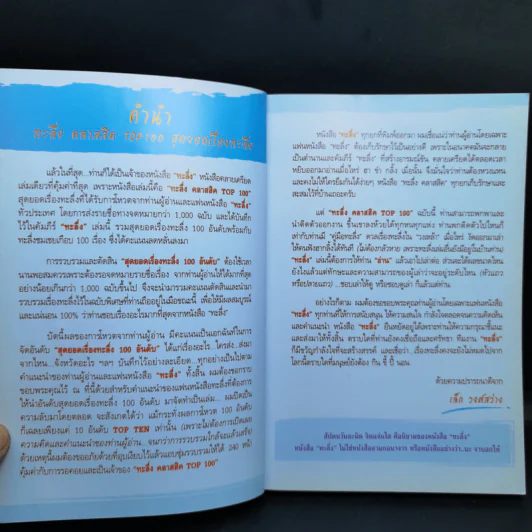 คำนำ
ทะลึ่ง คลาสสิค TOP 100 สุดยอดเรื่องทะลึ่ง
แล้วในที่สุด...ท่านก็ได้เป็นเจ้าของหนังสือ "ทะลึ่ง" หนังสือคลายเครียด
เล่มเดียวที่คุ้มค่าที่สุด เพราะหนังสือเล่มนี้คือ "ทะลึ่ง คลาสสิค TOP 100"
สุดยอดเรื่องทะลึ่งที่ได้รับการโหวตจากท่านผู้อ่านและแฟนหนังสือ "ทะลึ่ง"
ทั่วประเทศ โดยการส่งรายชื่อทางจดหมายกว่า 1,000 ฉบับ และได้บันทึก
ไว้ในคัมภีร์ "ทะลึ่ง" เล่มนี้ รวมสุดยอดเรื่องทะลึ่ง 100 อันดับพร้อมกับ
ทะลึ่งชมเชยเกือบ 100 เรื่อง ซึ่งได้คะแนนลดหลั่นลงมา
การรวบรวมและตัดสิน "สุดยอดเรื่องทะลึ่ง 100 อันดับ" ต้องใช้เวลา
นานพอสมควรเพราะต้องรอจดหมายรายชื่อเรื่อง จากท่านผู้อ่านให้ได้มากที่สุด
อย่างน้อยเกินกว่า 1,000 ฉบับขึ้นไป จึงจะนำมารวมคะแนนตัดสินและนำมา
รวบรวมเรื่องทะลึ่งไว้ในฉบับพิเศษที่ท่านถืออยู่ในมือขณะนี้ เพื่อให้มีผลสมบูรณ์
และแน่นอน 100% ว่าท่านชอบเรื่องอะไรมากที่สุดจากหนังสือ "ทะลึ่ง"
บัดนี้ผลของการโหวตจากท่านผู้อ่าน มีคะแนนเป็นเอกฉันท์ในการ
จัดอันดับ "สุดยอดเรื่องทะลึ่ง 100 อันดับ" ได้แก่เรื่องอะไร ใครส่ง..ส่งมา
จากไหน...จังหวัดอะไร ฯลฯ บันทึกไว้อย่างละเอียด...ทุกอย่างเป็นไปตาม
คำแนะนำของท่านผู้อ่านและแฟนหนังสือ "ทะลึ่ง" ทั้งสิ้น ผมต้องขอกราบ
ขอบพระคุณไว้ ณ ที่นี้ด้วยสำหรับคำแนะนำของแฟนหนังสือทะลึ่งที่ต้องการ
ให้นำอันดับสุดยอดเรื่องทะลึ่ง 100 อันดับ มาจัดทำเป็นเล่ม...ผมปิดเป็น
ความลับมาโดยตลอด จะสังเกตได้ว่า แม้กระทั่งผลการโหวต 100 อันดับ
ก็เฉลยเพียงแค่ 10 อันดับ TOP TEN เท่านั้น (เพราะไม่ต้องการเปิดเผย
ความคิดและคำแนะนำของท่านผู้อ่าน) จนกว่าการรวบรวมใกล้จะแล้วเสร็จ
ด้วยเหตุนี้ผมต้องขออภัยด้วยที่อุบเงียบไว้แล้วแอบซุ่มรวบรวมให้ได้ 240 หน้า
คุ้มค่ากับการรอคอยและเป็นเจ้าของ "ทะลึ่ง คลาสสิค TOP 100"
หนังสือ "ทะลึ่ง" ทุกยุคที่พิมพ์ออกมา ผมเชื่อแน่ว่าท่านผู้อ่านโดยเฉพาะ
แฟนหนังสือ "ทะลึ่ง" ต้องเก็บรักษาไว้เป็นอย่างดี เพราะในอนาคตมันจะกลาย
เป็นตำนานและคัมภีร์ "ทะลึ่ง" ที่สร้างอารมณ์ขัน คลายเครียดได้ตลอดเวลา
หยิบออกมาอ่านเมื่อไหร่ ฮา ขำ กลิ้ง เมื่อนั้น จึงมั่นใจว่าท่านต้องหวงแหน
และคงไม่ให้ใครยืมกันได้ง่ายๆ หนังสือ "ทะลึ่ง คลาสสิค" ทุกยุคเก็บรักษาและ
สะสมไว้ที่บ้านเถอะครับ
แต่ "ทะลึ่ง คลาสสิค TOP 100" ฉบับนี้ ท่านสามารถพกพาและ
นำติดตัวออกงาน ขึ้นเขาลงห้วยได้ทุกหนทุกแห่ง ท่านพกติดตัวไปไหนก็
เท่ากับท่านมี "คู่มือทะลึ่ง" ควงเรื่องทะลึ่งใน "วงเหล้า" เมื่อไหร่ งัดออกมาเล่า
ให้คนฟังฮากลิ้งได้ทันที (ไม่ต้องกลัวหาย เพราะเรื่องทะลึ่งเล่มอื่นยังมีอยู่ในบ้านเรา)
"ทะลึ่ง" เล่มนี้ต้องการให้ท่าน "อ่าน" แล้วเอาไปเล่าต่อ ส่วนจะได้ผลขนาดไหน
ยังไงแล้วแต่ทักษะและความสามารถของผู้เล่าว่าจะอยู่ระดับไหน (หัวแถว
หรือปลายแถว) ...ชอบเล่าให้ดู หรือชอบดูเล่า ก็แล้วแต่ท่าน..
อย่างไรก็ตาม ผมต้องขอขอบพระคุณท่านผู้อ่านโดยเฉพาะแฟนหนังสือ
"ทะลึ่ง" ทุกท่านที่ให้การสนับสนุน ให้ความสนใจ กำลังใจตลอดจนความคิดเห็น
และคำแนะนำ ทำหนังสือ "ทะลึ่ง" ยืนหยัดอยู่ได้เพราะท่านให้ความกรุณาชี้แนะ
และส่งมาให้ทั้งสิ้น ตราบใดที่ท่านยังคงเชื่อถือและศรัทธา ทีมงาน "ทะลึ่ง"
ก็มีขวัญกำลังใจที่จะสร้างสรรค์ และเชื่อว่า เรื่องทะลึ่งคงจะยังไม่หมดไปจาก
โลกนี้ตราบใดที่มนุษย์ยังต้อง กิน ขี้ ปี้ นอน
ด้วยความปรารถนาดีจาก
เอ็ด วงศ์สว่าง
หนังสือ "ทะลึ่ง" ไม่ใช่หนังสือลามกอนาจาร หรือหนังสืออย่างว่า..นะ จาบอกให้